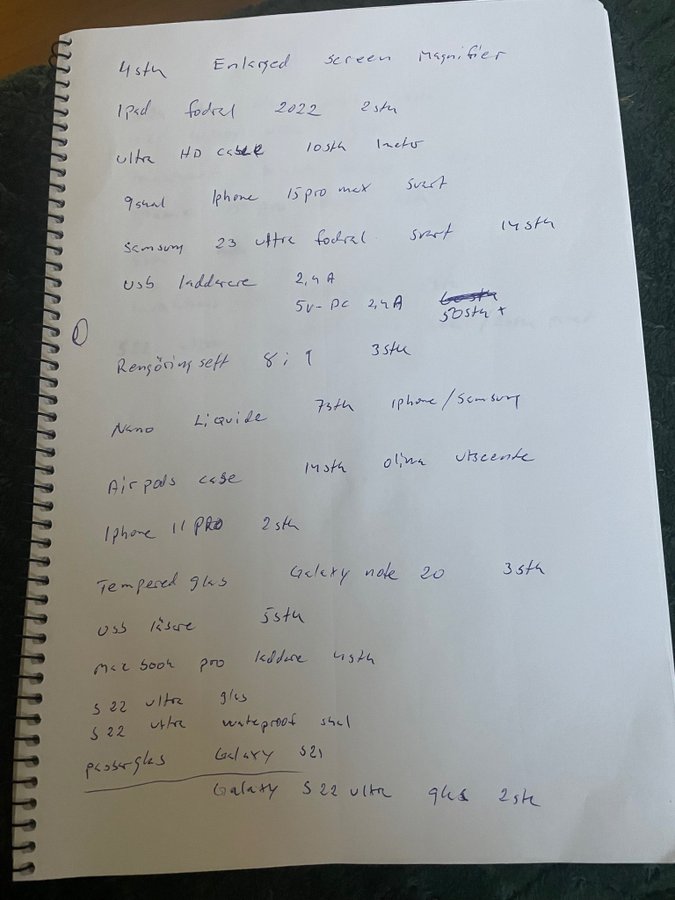 4stk Enlarged screen Magnifier
Ipad fodral 2022 2stk
ultra HD 10stk 1meter
9skal Iphone 15 pro max svart
Samsung 23 ultra fodral svart 14stk
usb laddarere 2,4A
5v-DC 2,4A
50stk +
1
Rengöring sett 8 i 1 3stk
Nano Liquide 73stk Iphone/Samsung
Airpods case 14stk olika utseende
Iphone 11 PRO 2stk
Tempered glas Galaxy note 20 3stk
usb läsare 5stk
Mac book pro laddare 4stk
S22 ultra glas
S22 ultra waterproof skal
passerglas Galaxy S21
Galaxy S22 ultra glas 2stk